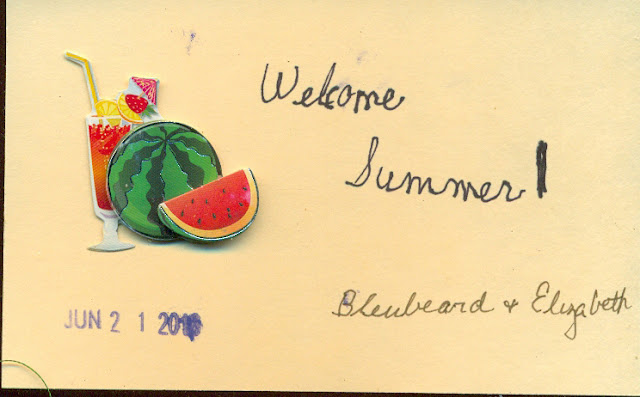 Welcome
Summer!
Bleubeard & Elizabeth
JUN 2 1